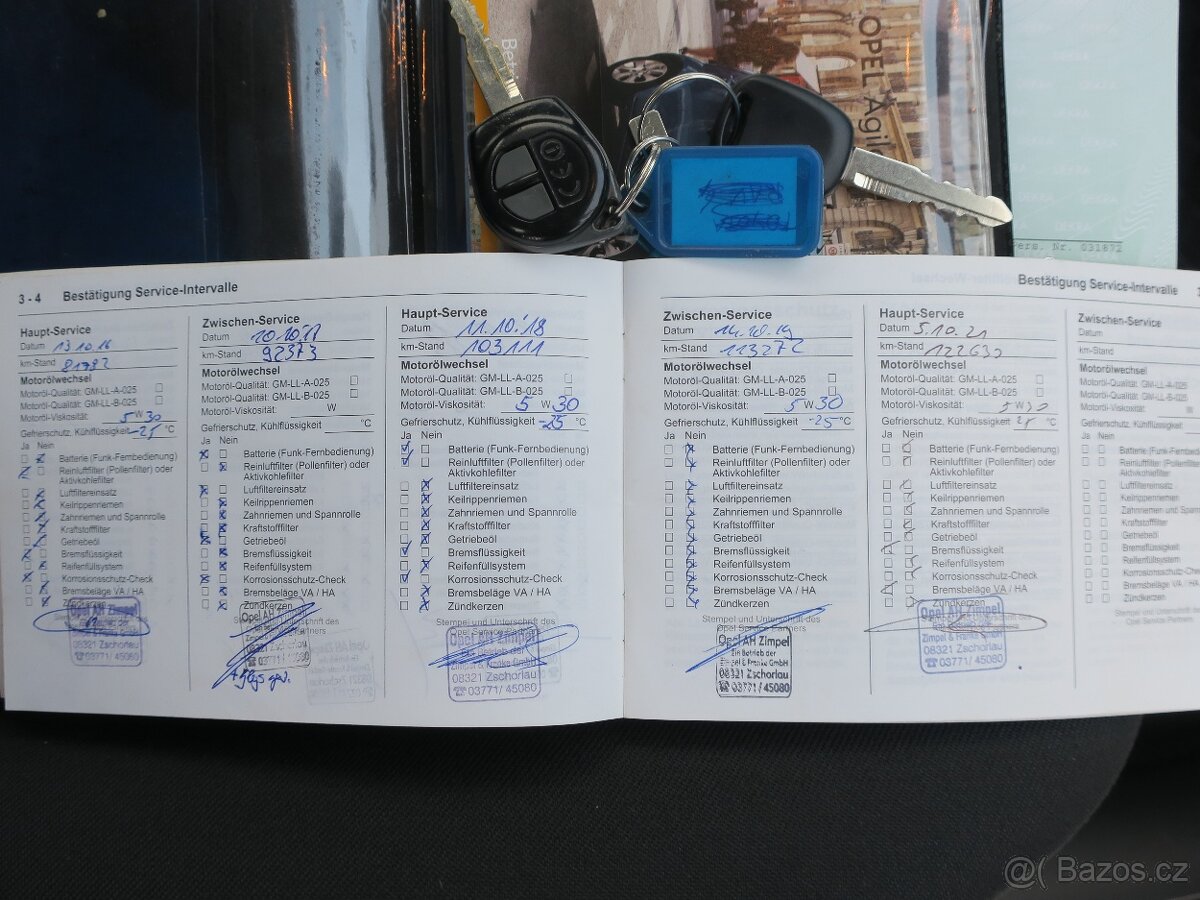 OPEL Agil
Pers. Nr. 031872
3 - 4 Bestätigung Service-Intervalle
Haupt-Service
Datum 13.10.16
km-Stand
Motorölwechsel
Motoröl-Qualität: GM-LL-A-025
Motoröl-Qualität: GM-LL-B-025
Motoröl-Viskosität: 5 W 30
Gefrierschutz, Kühlflüssigkeit -25 °C
Ja Nein
Batterie (Funk-Fernbedienung)
Reinluftfilter (Pollenfilter) oder
Aktivkohlefilter
Luftfiltereinsatz
Keilrippenriemen
Zahnriemen und Spannrolle
Kraftstofffilter
Getriebeöl
Bremsflüssigkeit
Reifenfüllsystem
Korrosionsschutz-Check
Bremsbeläge VA / HA
Opel AH Zimpel
08321 Zschorlau
☎ 03771/ 45080
Zwischen-Service
Datum
km-Stand 92373
Motorölwechsel
Motoröl-Qualität: GM-LL-A-025
Motoröl-Qualität: GM-LL-B-025
Motoröl-Viskosität: W
Gefrierschutz, Kühlflüssigkeit °C
Ja Nein
Batterie (Funk-Fernbedienung)
Reinluftfilter (Pollenfilter) oder
Aktivkohlefilter
Luftfiltereinsatz
Keilrippenriemen
Zahnriemen und Spannrolle
Kraftstofffilter
Getriebeöl
Bremsflüssigkeit
Reifenfüllsystem
Korrosionsschutz-Check
Bremsbeläge VA / HA
Zündkerzen
Opel AH Zimpel
08321 Zschorlau
Haupt-Service
Datum 11.10.'18
km-Stand 103111
Motorölwechsel
Motoröl-Qualität: GM-LL-A-025
Motoröl-Qualität: GM-LL-B-025
Motoröl-Viskosität: 5 W 30
Gefrierschutz, Kühlflüssigkeit -25 °C
Ja Nein
Batterie (Funk-Fernbedienung)
Reinluftfilter (Pollenfilter) oder
Aktivkohlefilter
Luftfiltereinsatz
Keilrippenriemen
Zahnriemen und Spannrolle
Kraftstofffilter
Getriebeöl
Bremsflüssigkeit
Reifenfüllsystem
Korrosionsschutz-Check
Bremsbeläge VA / HA
Zündkerzen
Stempel und Unterschrift des
Opel Service Partners
Opel AH Zimpel
08321 Zschorlau
☎ 03771/ 45080
Bestätigung Service-Intervalle
Zwischen-Service
Datum 14.10.19
km-Stand 113272
Motorölwechsel
Motoröl-Qualität: GM-LL-A-025
Motoröl-Qualität: GM-LL-B-025
Motoröl-Viskosität: 5 W 30
Gefrierschutz, Kühlflüssigkeit -25 °C
Ja Nein
Batterie (Funk-Fernbedienung)
Reinluftfilter (Pollenfilter) oder
Aktivkohlefilter
Luftfiltereinsatz
Keilrippenriemen
Zahnriemen und Spannrolle
Kraftstofffilter
Getriebeöl
Bremsflüssigkeit
Reifenfüllsystem
Korrosionsschutz-Check
Bremsbeläge VA / HA
Zündkerzen
Stempel und Unterschrift des
Opel Service Partners
Opel AH Zimpel
Ein Betrieb der
Zimpel & Franke GmbH
08321 Zschorlau
☎ 03771/ 45080
Haupt-Service
Datum 5.10.21
km-Stand 122630
Motorölwechsel
Motoröl-Qualität: GM-LL-A-025
Motoröl-Qualität: GM-LL-B-025
Motoröl-Viskosität: 5 W 30
Gefrierschutz, Kühlflüssigkeit °C
Ja Nein
Batterie (Funk-Fernbedienung)
Reinluftfilter (Pollenfilter) oder
Aktivkohlefilter
Luftfiltereinsatz
Keilrippenriemen
Zahnriemen und Spannrolle
Kraftstofffilter
Getriebeöl
Bremsflüssigkeit
Reifenfüllsystem
Korrosionsschutz-Check
Bremsbeläge VA / HA
Zündkerzen
Opel AH Zimpel
Zimpel & Franke GmbH
08321 Zschorlau
☎ 03771/ 45080
Zwischen-Service
Datum
km-Stand
Motorölwechsel
Motoröl-Qualität: GM-LL-A-025
Motoröl-Qualität: GM-LL-B-025
Motoröl-Viskosität: W
Gefrierschutz, Kühlflüssigkeit
Ja Nein
Batterie (Funk-Fernbed
Reinluftfilter (Pollenfilter)
Aktivkohlefilter
Luftfiltereinsatz
Keilrippenriemen
Zahnriemen und Spannrolle
Kraftstofffilter
Getriebeöl
Bremsflüssigkeit
Reifenfüllsystem
Korrosionsschutz-Check
Bremsbeläge VA / HA
Zündkerzen
Stempel und Unterschrift des
Opel Service Partners
Bazos.cz